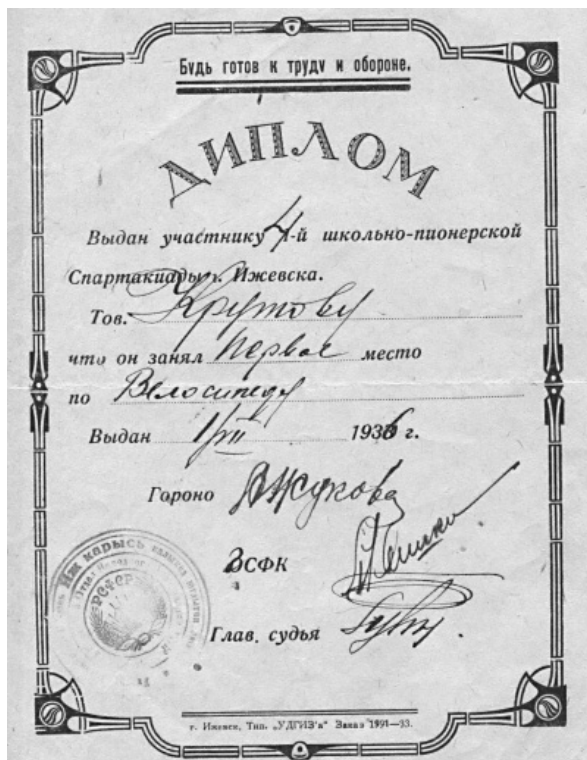 Будь готов к труду и обороне.
ДИПЛОМ
Выдан участнику 4-й школьно-пионерской
Спартакиады г. Ижевска.
Тов. Крутову
что он занял Первое место
по Велосипеду
Выдан 1/VII 1936 г.
Гороно АЖукова
ВСФК
Глав. судья
Иж карысь
РСФСР
г. Ижевск, Тип. „УДГИЗ'а" Заказ 1991—33.